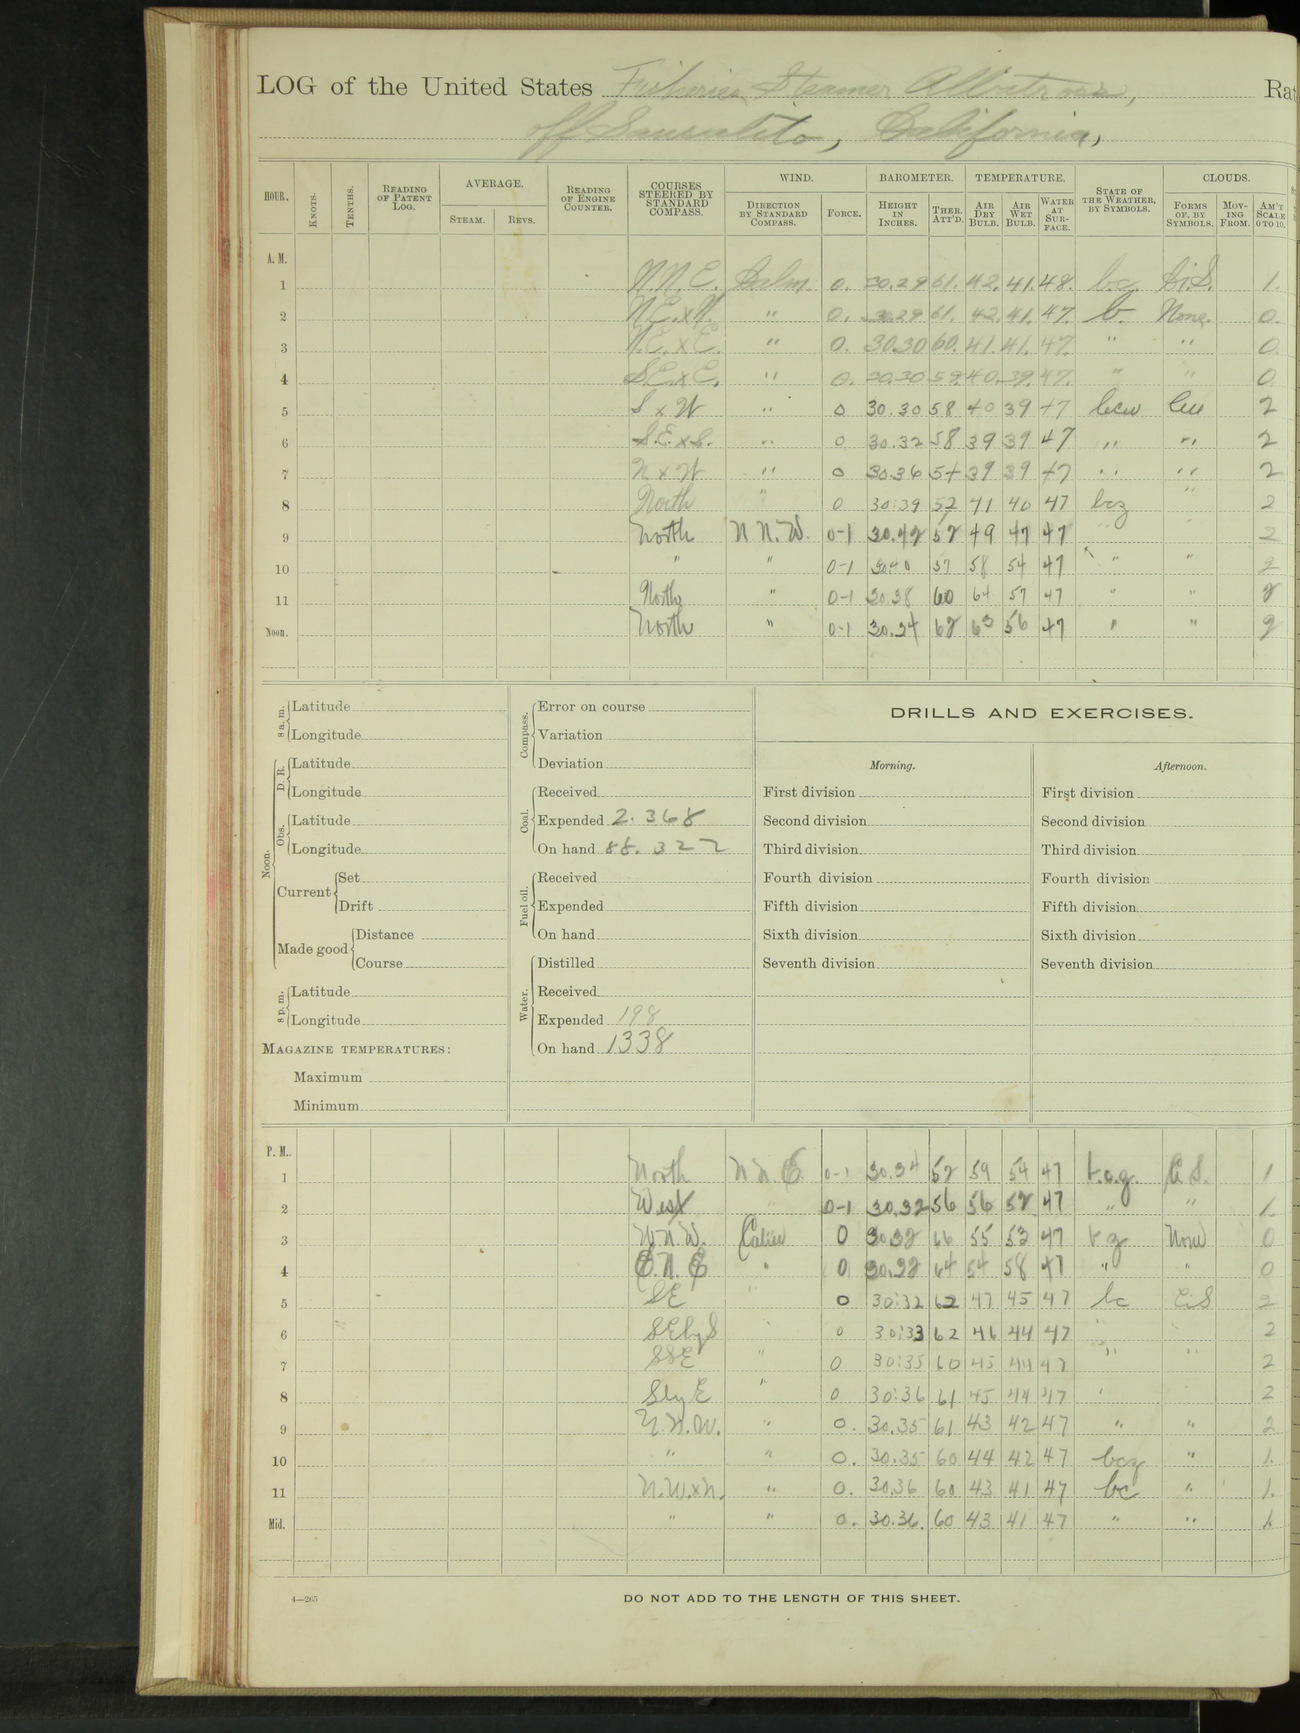 LOG of the United States Fisheries Steamer Albatross, Rat
off Sausalito, California,
HOUR. KNOTS. TENTHS. READING OF PATENT LOG. AVERAGE. STEAM. REVS. READING OF ENGINE COUNTER. COURSES STEERED BY STANDARD COMPASS. WIND. DIRECTION BY STANDARD COMPASS. FORCE. BAROMETER. HEIGHT IN INCHES. THER. ATT'D. TEMPERATURE. AIR DRY BULB. AIR WET BULB. WATER AT SURFACE. STATE OF THE WEATHER, BY SYMBOLS. CLOUDS. FORMS OF, BY SYMBOLS. MOVING FROM. AM'T SCALE 0 TO 10.
A. M.
1 N.N.E. Calm 0. 30.29 61. 42. 41. 48. b.c. Ci.S. 1.
2 N.E.x N. " 0. 30.29 61. 42. 41. 47. b. None. 0.
3 N.E. x E. " 0. 30.30 60. 41. 41. 47. " " 0.
4 S.E. x E. " 0. 30.30 59. 40. 39. 47. " " 0
5 S x W " 0 30.30 58 40 39 47 bcw Cu 2
6 S.E. x S. " 0 30.32 58 39 39 47 " " 2
7 N x W " 0 30.36 54 39 39 47 " " 2
8 North " 0 30:39 52 41 40 47 bcz " 2
9 North N N. W. 0-1 30.42 52 49 47 47 " " 2
10 " " 0-1 30.40 57 58 54 47 " " 2
11 North " 0-1 30.38 60 64 57 47 " " 2
Noon. North " 0-1 30.34 62 63 56 47 " " 2
8 a. m. Latitude
Longitude
Noon. D. R. Latitude
Longitude
Obs. Latitude
Longitude
Current Set
Drift
Made good Distance
Course
8 p. m. Latitude
Longitude
MAGAZINE TEMPERATURES:
Maximum
Minimum
Compass. Error on course
Variation
Deviation
Coal. Received
Expended 2.368
On hand 88.322
Fuel oil. Received
Expended
On hand
Water. Distilled
Received
Expended 198
On hand 1338
DRILLS AND EXERCISES.
Morning. Afternoon.
First division First division
Second division Second division
Third division Third division
Fourth division Fourth division
Fifth division Fifth division
Sixth division Sixth division
Seventh division Seventh division
P. M.
1 North N.N.E. 0-1 30.34 59 54 47 1
2 West " 0-1 30.32 56 56 52 47 " " 1.
3 W.N.W. Calm 0 30.32 66 55 53 47 None 0
4 E.N.E " 0 30.32 64 54 58 47 " " 0
5 SE " 0 30:32 62 47 45 47 bc Ci S 2
6 SEbyS " 0 30:33 62 46 44 47 " 2
7 SSE " 0 30:35 60 45 44 47 " " 2
8 SbyE " 0 30:36 61 45 44 47 " 2
9 N.N.W. " 0. 30.35 61 43 42 47 " " 2
10 " " 0. 30.35 60 44 42 47 bcz " 1.
11 N.W.xN. " 0. 30.36 60 43 41 47 bc " 1.
Mid. " " 0. 30.36. 60 43 41 47 " " 1.
4—265 DO NOT ADD TO THE LENGTH OF THIS SHEET.